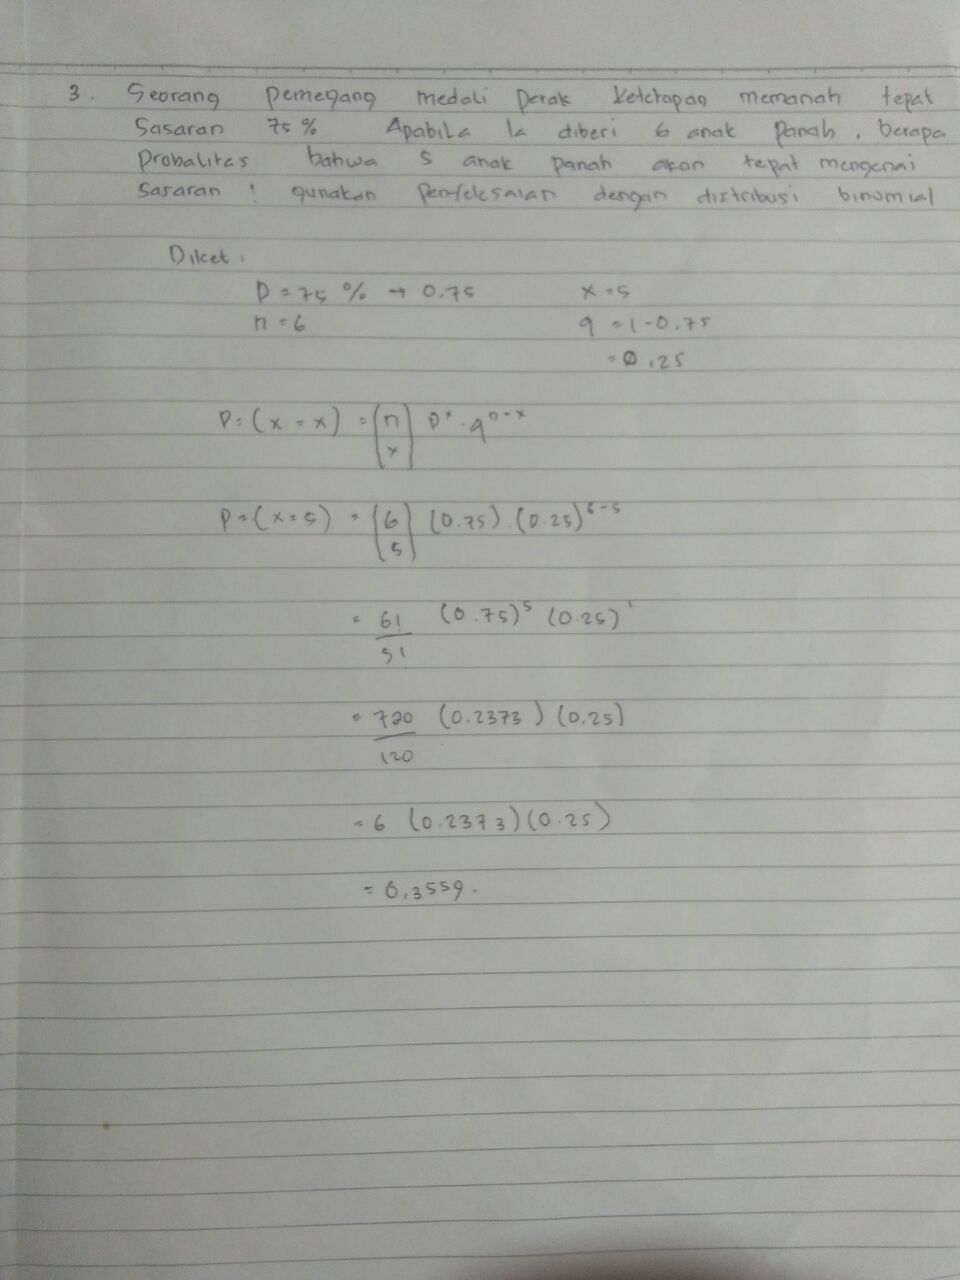 3. Seorang pemegang medali perak ketetapan memanah tepat
Sasaran 75% Apabila Ia diberi 6 anak panah, berapa
Probalitas bahwa 5 anak panah akan tepat mengenai
Sasaran ! gunakan dengan distribusi binomial
Diket :
P = 75 % → 0.75 x = 5
n = 6 q = 1 - 0.75
= 0,25
P = (x = x) = (n x) p^x . q^n-x
P = (x = 5) = (6 5) (0.75) . (0.25)^6-5
= 6!/5! (0.75)^5 (0.25)^1
= 720/120 (0.2373) (0,25)
= 6 (0.2373)(0.25)
= 0,3559.